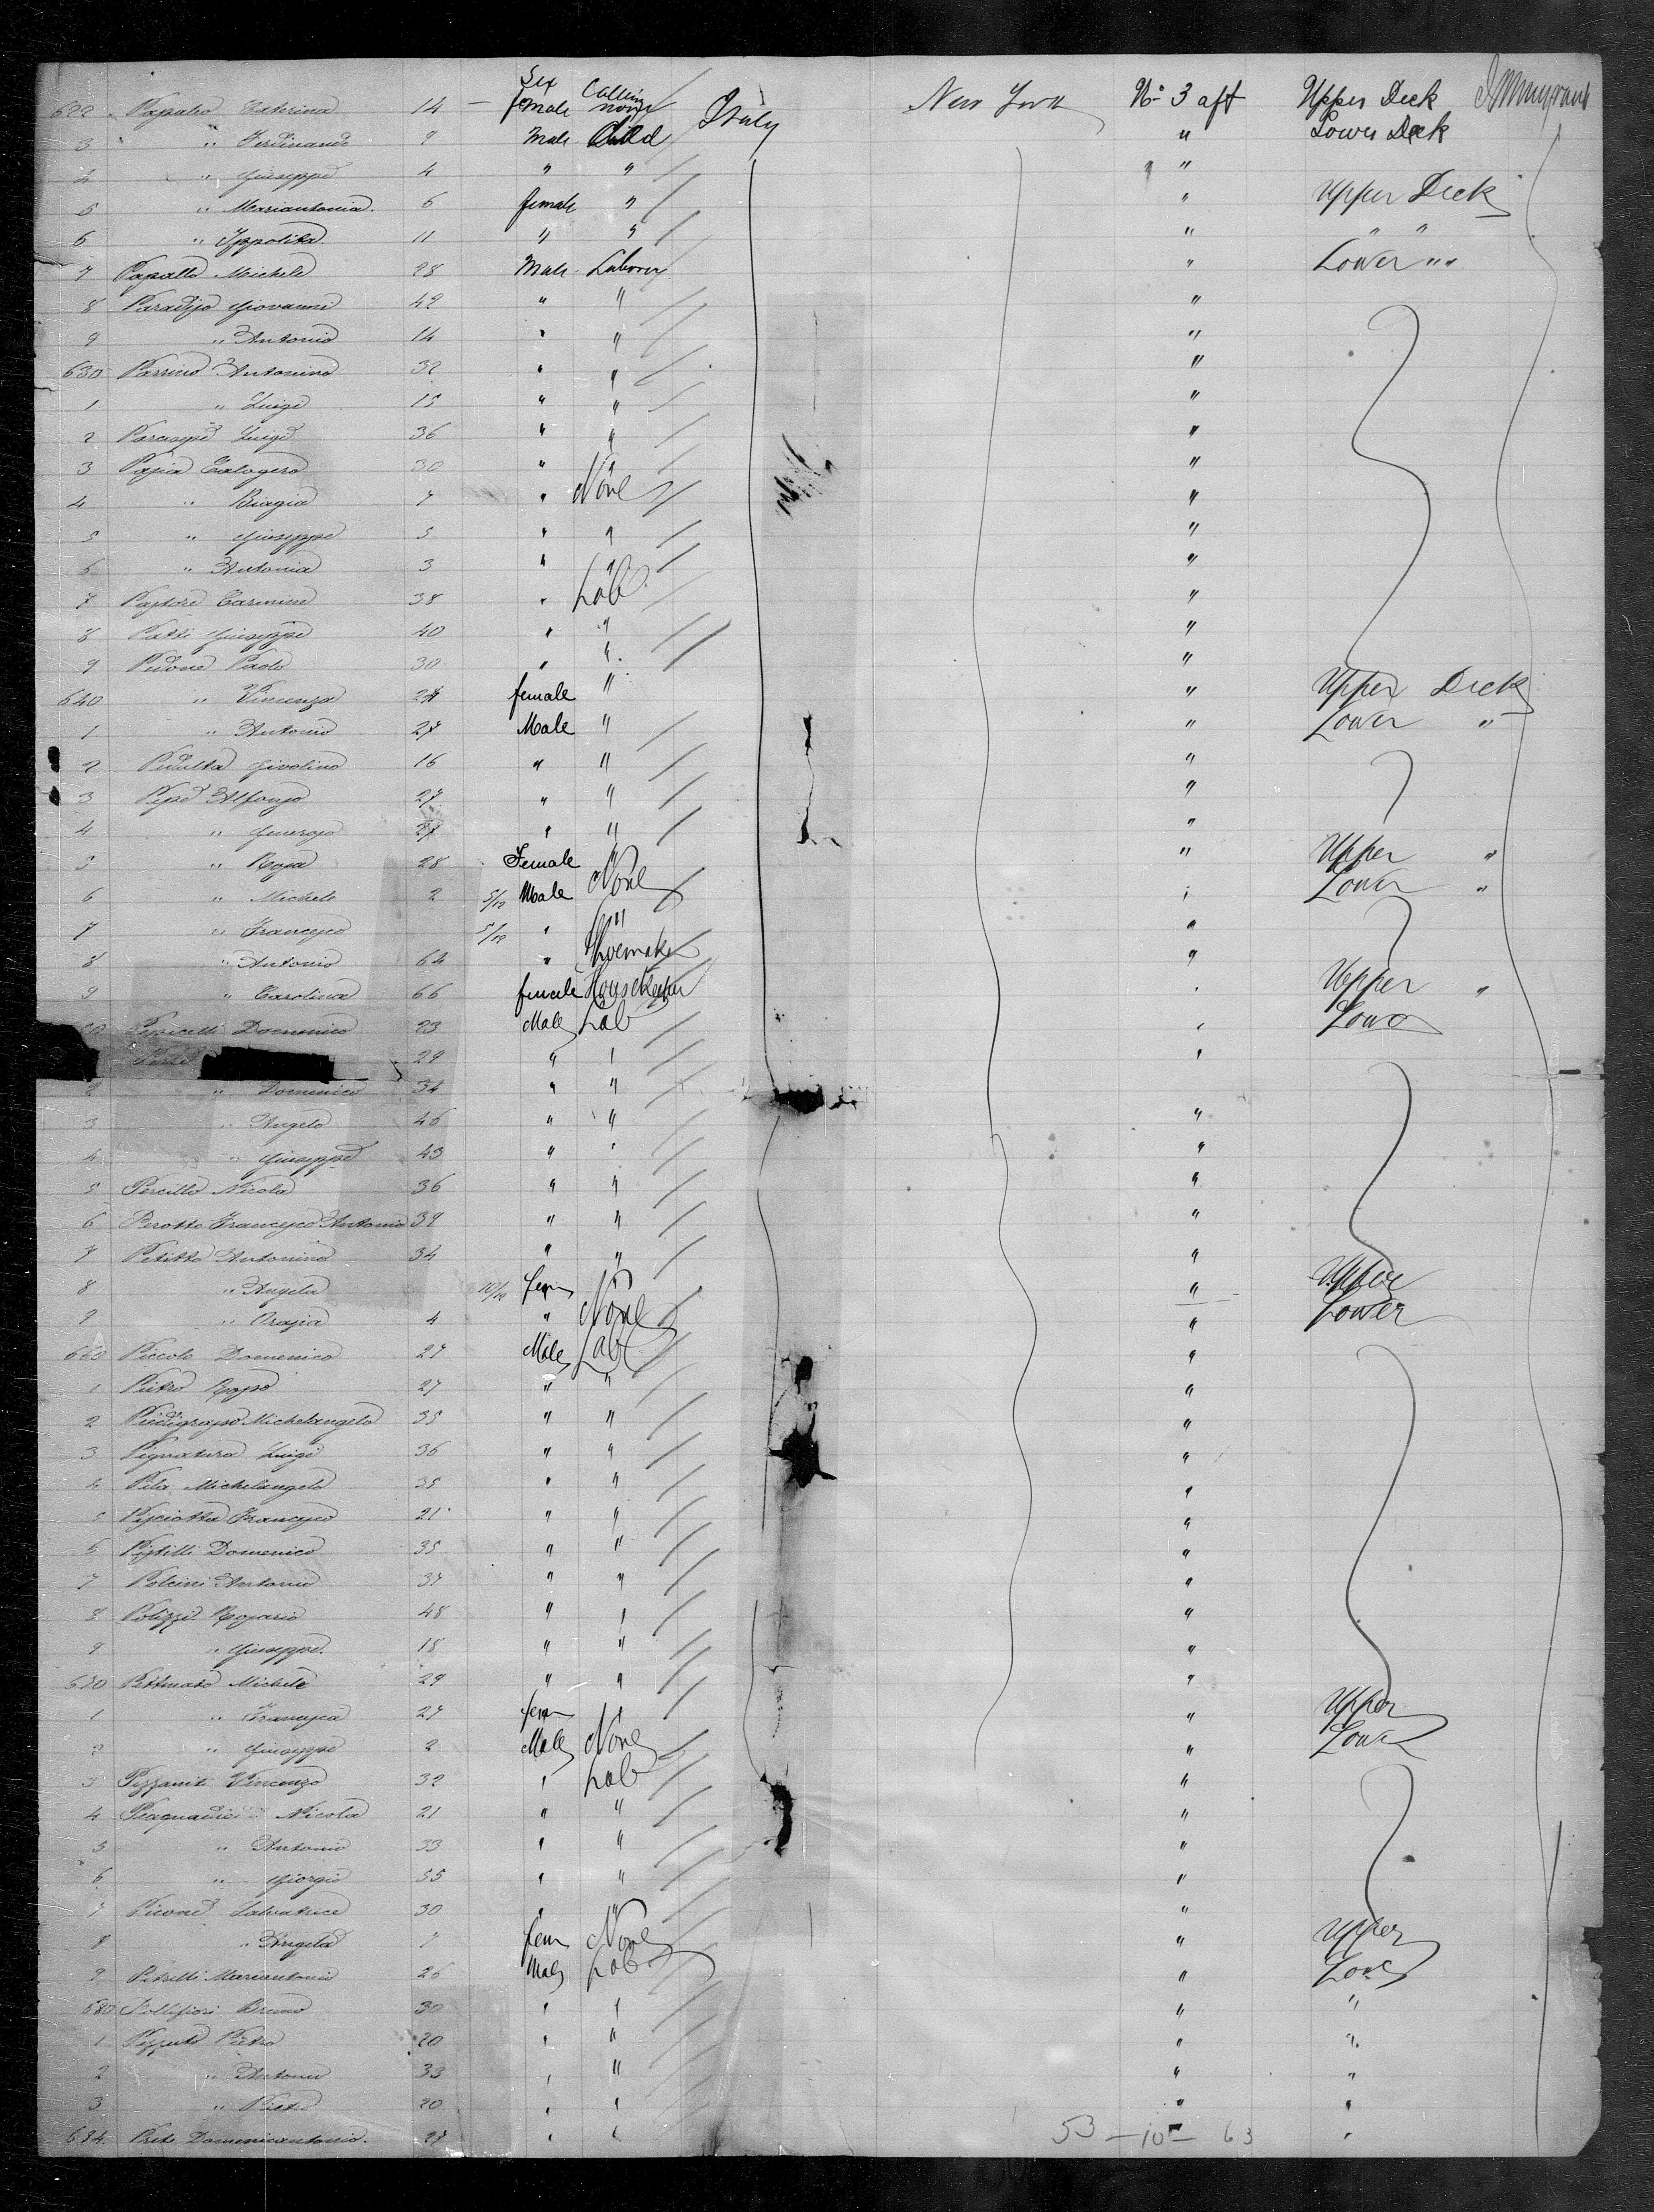 Sex Calling
622 Papaleo Caterina 14 — female none Italy New York No 3 aft Upper Deck Immigrant
3 " Ferdinando 9 Male Child " Lower Deck
4 " Giuseppe 4 " " "
5 " Mariantonia. 6 female " " Upper Deck
6 " Ippolita 11 " " " " "
7 Papallo Michele 28 Male Laborer " Lower "
8 Paradiso Giovanni 42 " " "
9 " Antonio 14 " " "
630 Parrino Antonino 32 " " "
1 " Luigi 15 " " "
2 Luigi 36 " " "
3 Calogero 30 " " "
4 " Biagio 7 " None "
5 " Giuseppe 5 " " "
6 " Antonia 3 " " "
7 Pastore Carmine 38 " Lab "
8 Patti Giuseppe 40 " " "
9 Paolo 30 " " "
640 " Vincenza female " " Upper Deck
1 " Antonio 27 Male " " Lower "
2 16 " " "
3 Pepe Alfonso 27 " " "
4 " " " "
5 " Rosa 28 Female " " Upper "
6 " Michele 2 5/12 Male None " Lower "
7 " Francesco 5/12 " " "
8 " Antonio 64 " Shoemaker "
9 " Carolina 66 female Housekeeper " Upper "
Domenico 23 Male Lab " Lower
29 " " "
2 " Domenico 34 " "
3 " Angelo 46 " " "
4 " Giuseppe 43 " " "
5 Percillo Nicola 36 " " "
6 Perotto Francesco Antonio 39 " " "
7 Petitto Antonino 34 " " "
8 " Angela 10/12 fem " " Upper
9 " 4 " None " Lower
660 Piccolo Domenico 27 Male Lab "
1 Pietro 27 " " "
2 Michelangelo 35 " " "
3 Pignatura Luigi 36 " " "
4 Pila Michelangelo 35 " " "
5 Pisciotta Francesco 21 " " "
6 Pistilli Domenico 35 " " "
7 Polcini Antonio 37 " " "
8 Polizzi Rosario 48 " " "
9 " Giuseppe. 15 " " "
670 Pettinato Michele 29 " " "
1 " Francesca 27 fem " " Upper
2 " Giuseppe 2 Male None " Lower
3 Pizzaniti Vincenzo 32 " Lab "
4 Nicola 21 " " "
5 " Antonio 33 " " "
6 " Giorgio 55 " " "
7 Picone Salvatrice 30 " " "
8 " Angela 7 fem None " Upper
9 Petrelli Mariantonio 26 Male Lab " Lower
680 Bruno 30 " " " "
1 Pizzuto Pietro 20 " " " "
2 " Antonio 33 " " " "
3 " Pietro 20 " " " "
684. Domenicantonio. 27 " " " "
53 — 10 — 63